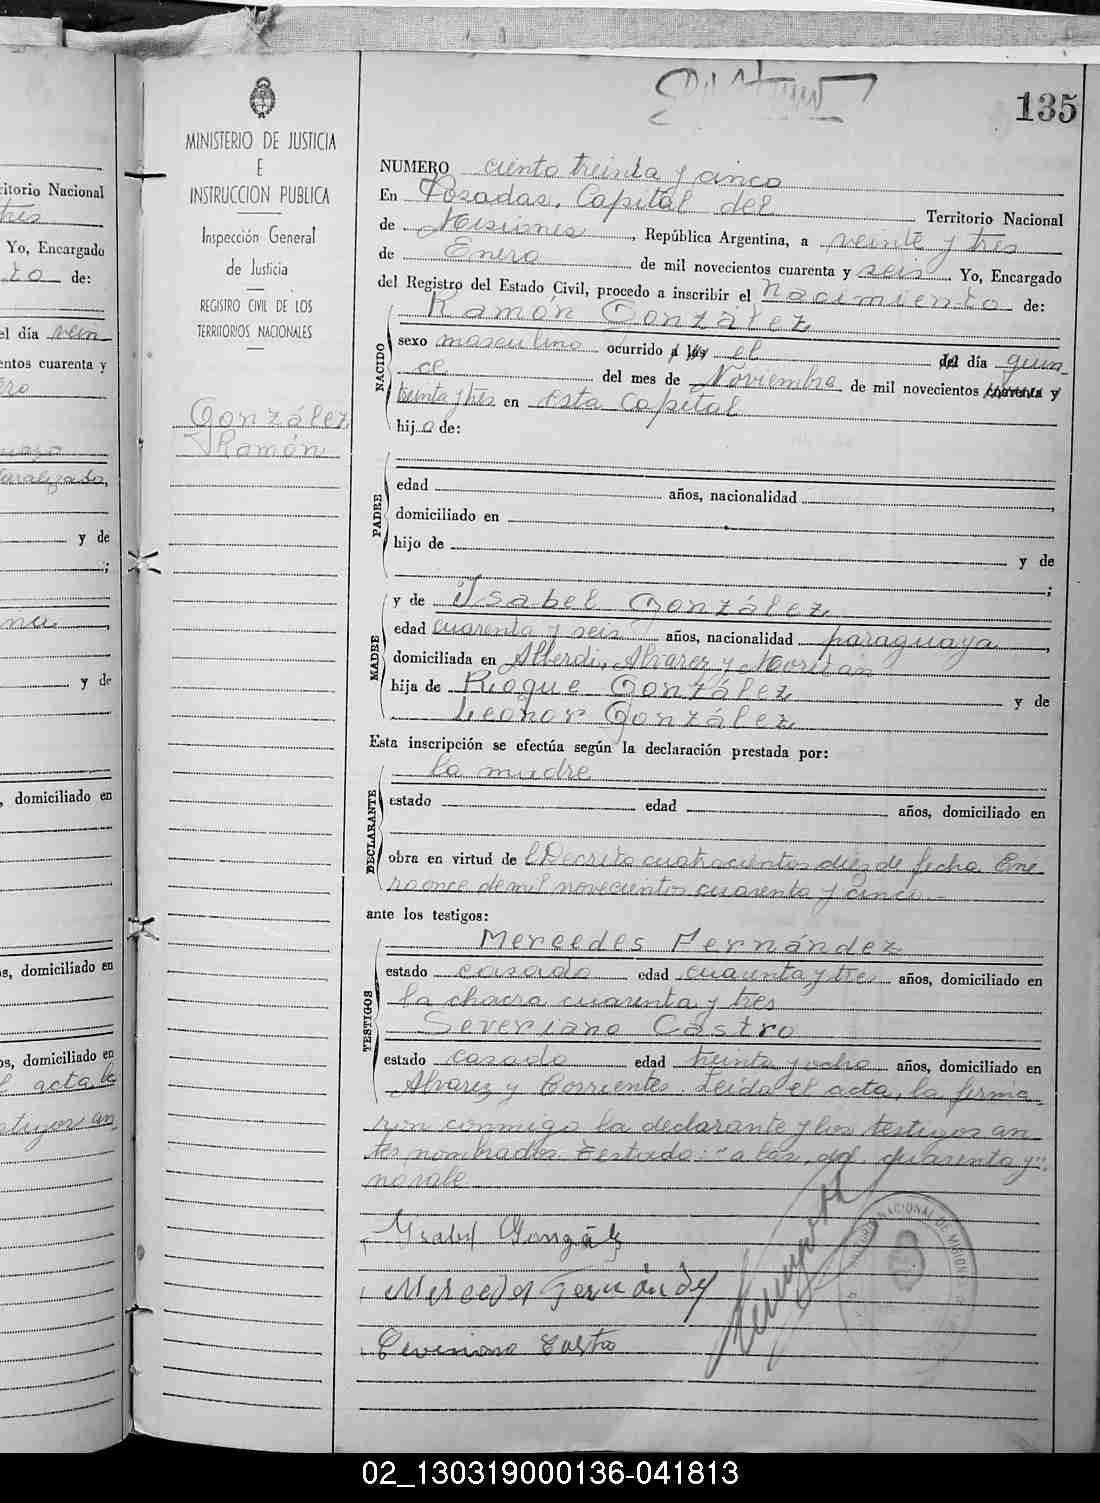 135
MINISTERIO DE JUSTICIA
E
INSTRUCCION PUBLICA
Inspección General
de Justicia
REGISTRO CIVIL DE LOS
TERRITORIOS NACIONALES
González
Ramón
NUMERO ciento treinta y cinco
En Posadas, Capital del Territorio Nacional
de Misiones, República Argentina, a veinte y tres
de Enero de mil novecientos cuarenta y seis Yo, Encargado
del Registro del Estado Civil, procedo a inscribir el nacimiento de:
NACIDO
Ramón González
sexo masculino ocurrido a las el del día quin
ce del mes de Noviembre de mil novecientos cuarenta y
treinta y tres en esta Capital
hijo de:
PADRE
edad años, nacionalidad ,
domiciliado en
hijo de y de
;
MADRE
y de Isabel González
edad cuarenta y seis años, nacionalidad paraguaya ,
domiciliada en Alberdi, Alvarez y
hija de Roque González y de
Leonor González
Esta inscripción se efectúa según la declaración prestada por:
DECLARANTE
la madre
estado edad años, domiciliado en
obra en virtud de Decreto cuatrocientos diez de fecha Ene
ro once de mil novecientos cuarenta y cinco
ante los testigos:
TESTIGOS
Mercedes Fernández
estado casado edad cuarenta y tres años, domiciliado en
la chacra cuarenta y tres
Severiano Castro
estado casado edad treinta y ocho años, domiciliado en
Alvarez y Corrientes. Leída el acta, la firma
ron conmigo la declarante y los testigos an
tes nombrados. Testado: "a las, del, cuarenta y":
no vale
Ysabel González
Mercedes Fernández
Ceveriano Castro
NACIONAL DE MISIONES
ritorio Nacional
tres
Yo, Encargado
de:
el día vein
entos cuarenta y
y de
;
na ,
y de
, domiciliado en
s, domiciliado en
os, domiciliado en
l acta, la
stigos an
02_130319000136-041813